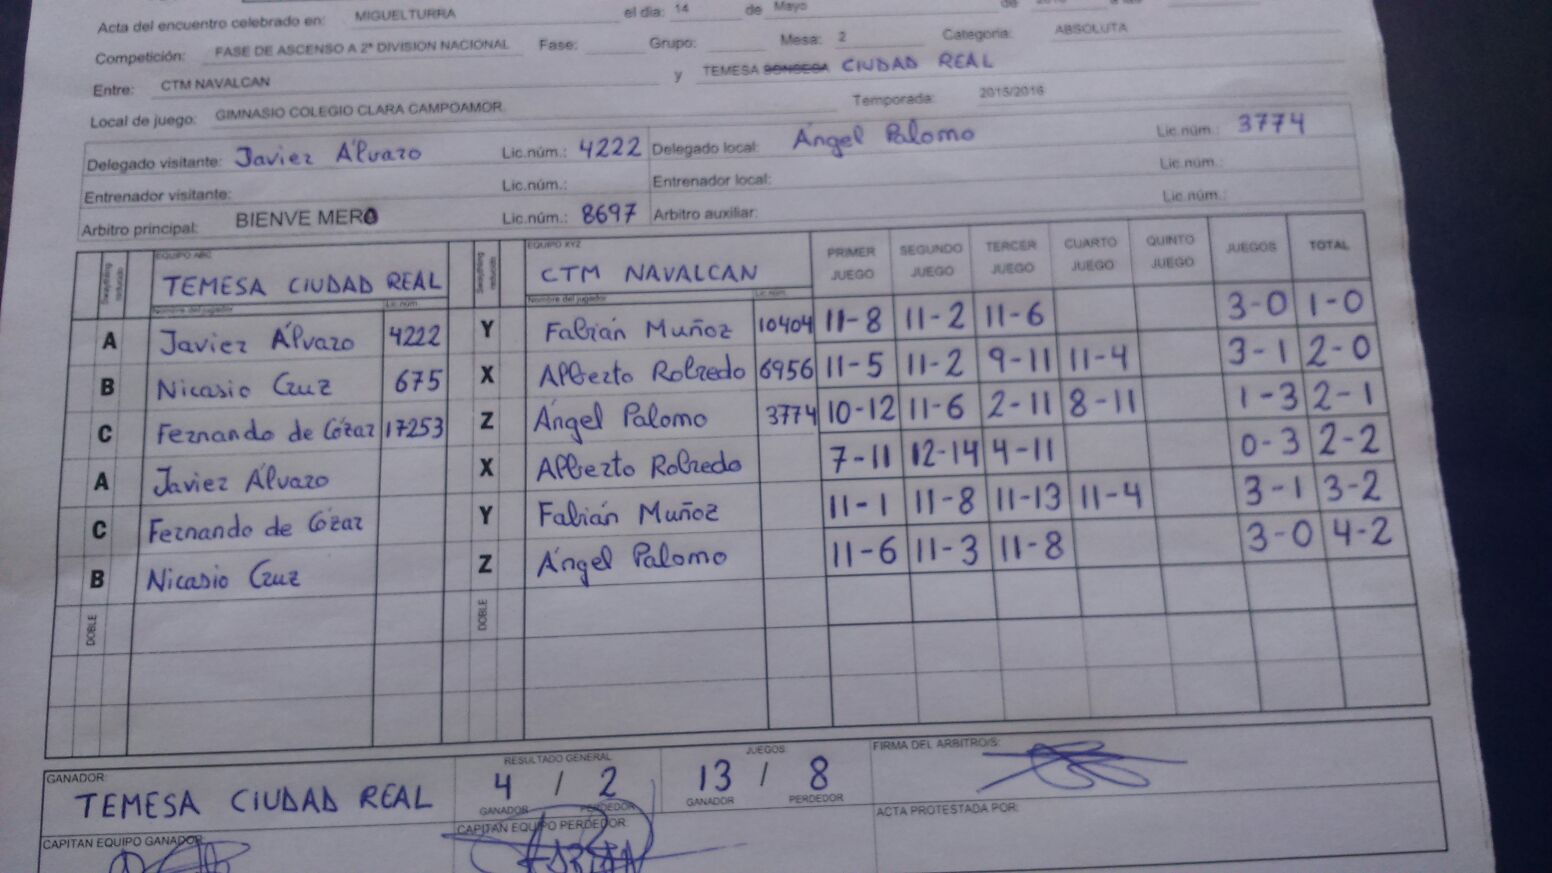 Acta del encuentro celebrado en: MIGUELTURRA el dia: 14 de Mayo de
Competición: FASE DE ASCENSO A 2ª DIVISION NACIONAL Fase: Grupo: Mesa: 2 Categoria: ABSOLUTA
Entre: CTM NAVALCAN y TEMESA SONSECA CIUDAD REAL
Local de juego: GIMNASIO COLEGIO CLARA CAMPOAMOR Temporada: 2015/2016
Delegado visitante: Javier Álvaro Lic.núm.: 4222 Delegado local: Ángel Palomo Lic.núm.: 3774
Entrenador visitante: Lic.núm.: Entrenador local: Lic.núm.:
Arbitro principal: BIENVE MERO Lic.núm.: 8697 Arbitro auxiliar: Lic.núm.:
Swaythling reducido EQUIPO ABC TEMESA CIUDAD REAL Swaythling reducido EQUIPO XYZ CTM NAVALCAN PRIMER JUEGO SEGUNDO JUEGO TERCER JUEGO CUARTO JUEGO QUINTO JUEGO JUEGOS TOTAL
Nombre del jugador Lic.núm. Nombre del jugador Lic.núm.
A Javier Álvaro 4222 Y Fabián Muñoz 10404 11-8 11-2 11-6 3-0 1-0
B Nicasio Cruz 675 X Alberto Robredo 6956 11-5 11-2 9-11 11-4 3-1 2-0
C Fernando de Cózar 17253 Z Ángel Palomo 3774 10-12 11-6 2-11 8-11 1-3 2-1
A Javier Álvaro X Alberto Robredo 7-11 12-14 4-11 0-3 2-2
C Fernando de Cózar Y Fabián Muñoz 11-1 11-8 11-13 11-4 3-1 3-2
B Nicasio Cruz Z Ángel Palomo 11-6 11-3 11-8 3-0 4-2
DOBLE DOBLE
GANADOR: RESULTADO GENERAL JUEGOS FIRMA DEL ARBITRO/S:
TEMESA CIUDAD REAL 4 / 2 13 / 8
GANADOR PERDEDOR GANADOR PERDEDOR
CAPITAN EQUIPO GANADOR: CAPITAN EQUIPO PERDEDOR: ACTA PROTESTADA POR: